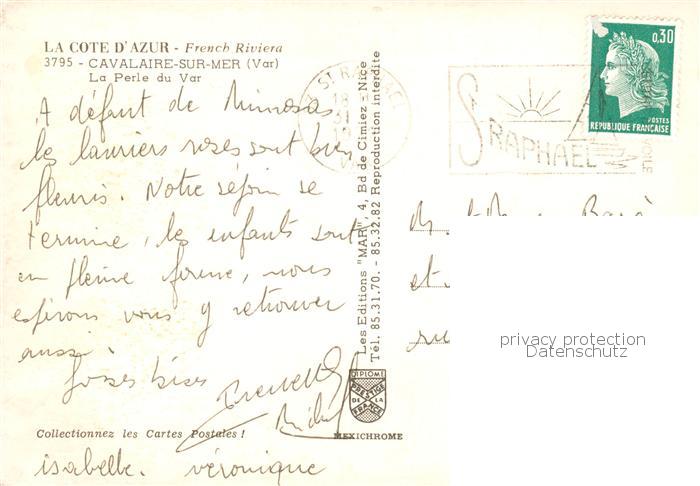 LA COTE D'AZUR - French Riviera
3795 - CAVALAIRE-SUR-MER (Var)
La Perle du Var
A défaut de Mimosas
les lauriers roses sont bien
fleuris. Notre séjour se
termine, les enfants sont
en pleine forme, nous
espérons vous y retrouver
aussi.
Grosses bises
isabelle. véronique
Collectionnez les Cartes Postales !
Les Editions "MAR", 4, Bd de Cimiez - Nice
Tél. 85.31.70. - 85.32.82 Reproduction interdite
DIPLOME
PRESTIGE
DE LA
FRANCE
MEXICHROME
ST RAPHAEL
0,30
POSTES
REPUBLIQUE FRANÇAISE
VOILE
et
privacy protection
Datenschutz